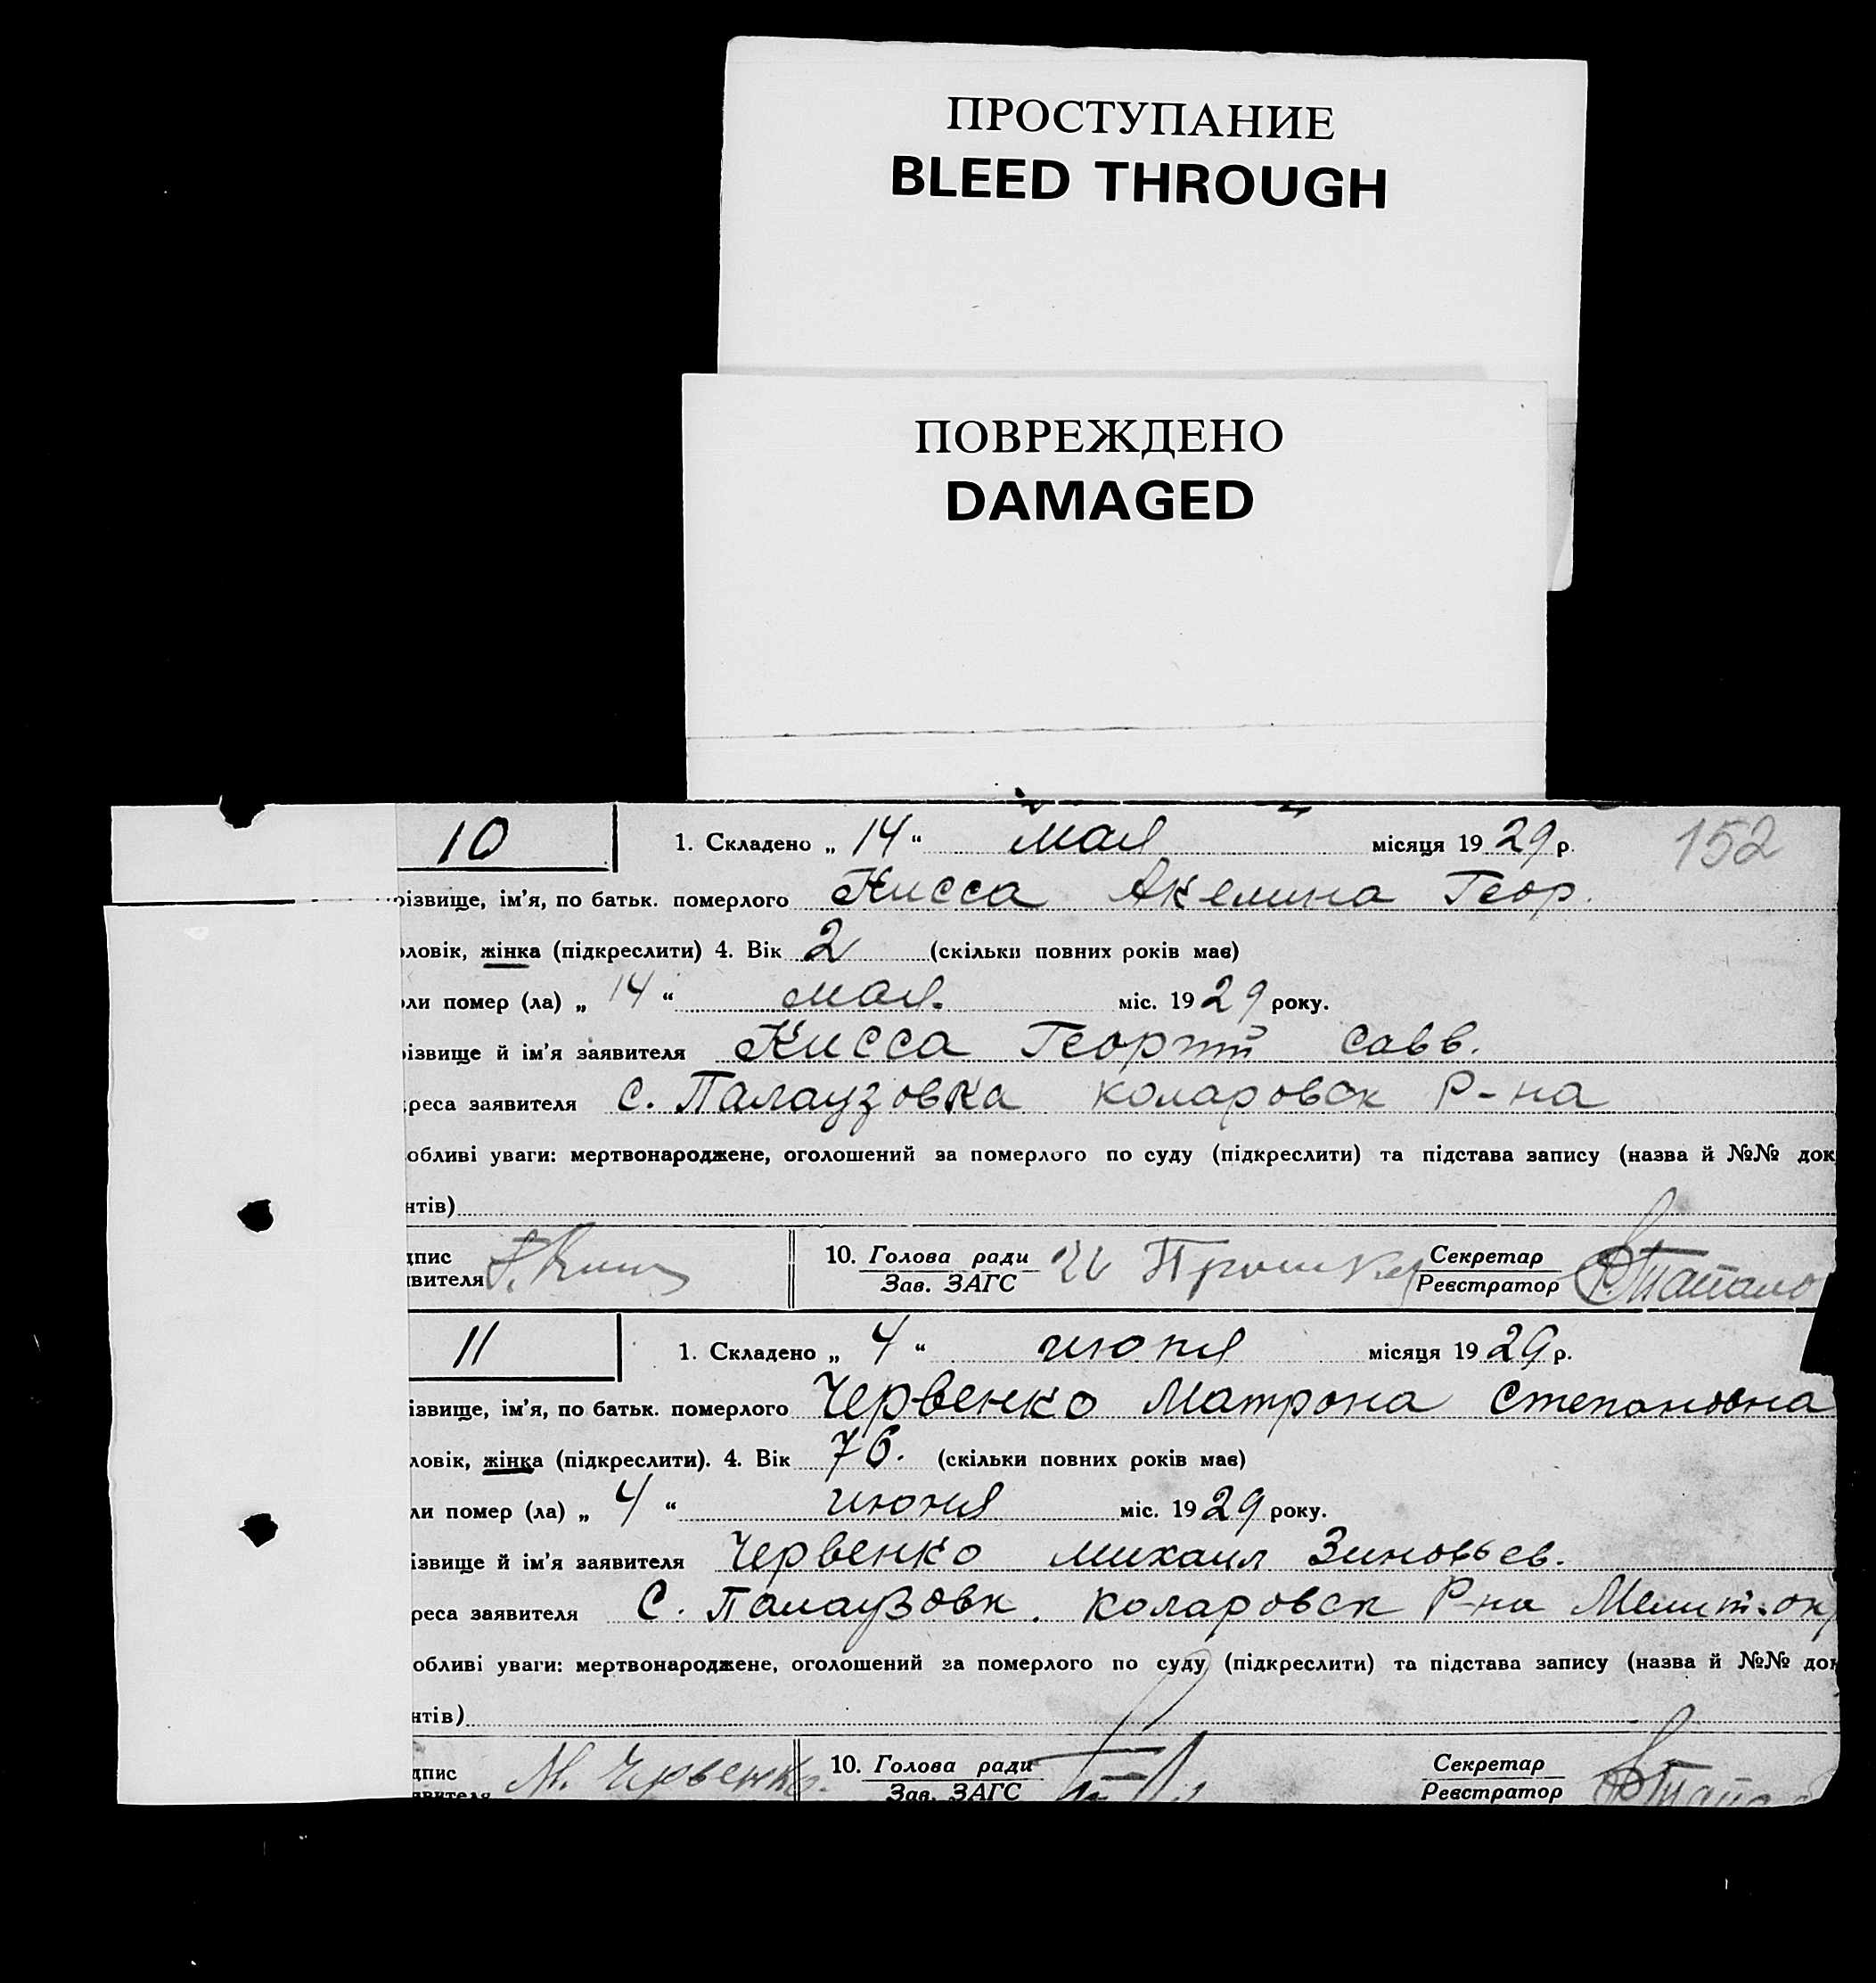 ПРОСТУПАНИЕ
BLEED THROUGH
ПОВРЕЖДЕНО
DAMAGED
10 1. Складено „ 14 “ мая місяця 19 29 р. 152
різвище, ім'я, по батьк. померлого Кисса Акелина Геор.
оловік, жінка (підкреслити) 4. Вік 2 (скільки повних років має)
оли помер (ла) „ 14 “ мая. міс. 19 29 року.
різвище й ім'я заявителя Кисса Георгий Савв.
дреса заявителя с. Палаузовка коларовск Р-на
обливі уваги: мертвонароджене, оголошений за померлого по суду (підкреслити) та підстава запису (назва й №№ док
нтів)
дпис
явителя
10. Голова ради
Зав. ЗАГС
Секретар
Реєстратор
11 1. Складено „ 4 “ июня місяця 19 29 р.
ізвище, ім'я, по батьк. померлого Червенко Матрона Степановна
ловік, жінка (підкреслити). 4. Вік 76. (скільки повних років має)
ли помер (ла) „ 4 “ июня міс. 19 29 року.
ізвище й ім'я заявителя Червенко Михаил Зиновьев.
реса заявителя С. Палаузовк. коларовск Р-на Мелит. окр
обливі уваги: мертвонароджене, оголошений за померлого по суду (підкреслити) та підстава запису (назва й №№ док
нтів)
дпис
явителя М. Червенко.
10. Голова ради
Зав. ЗАГС
Секретар
Реєстратор